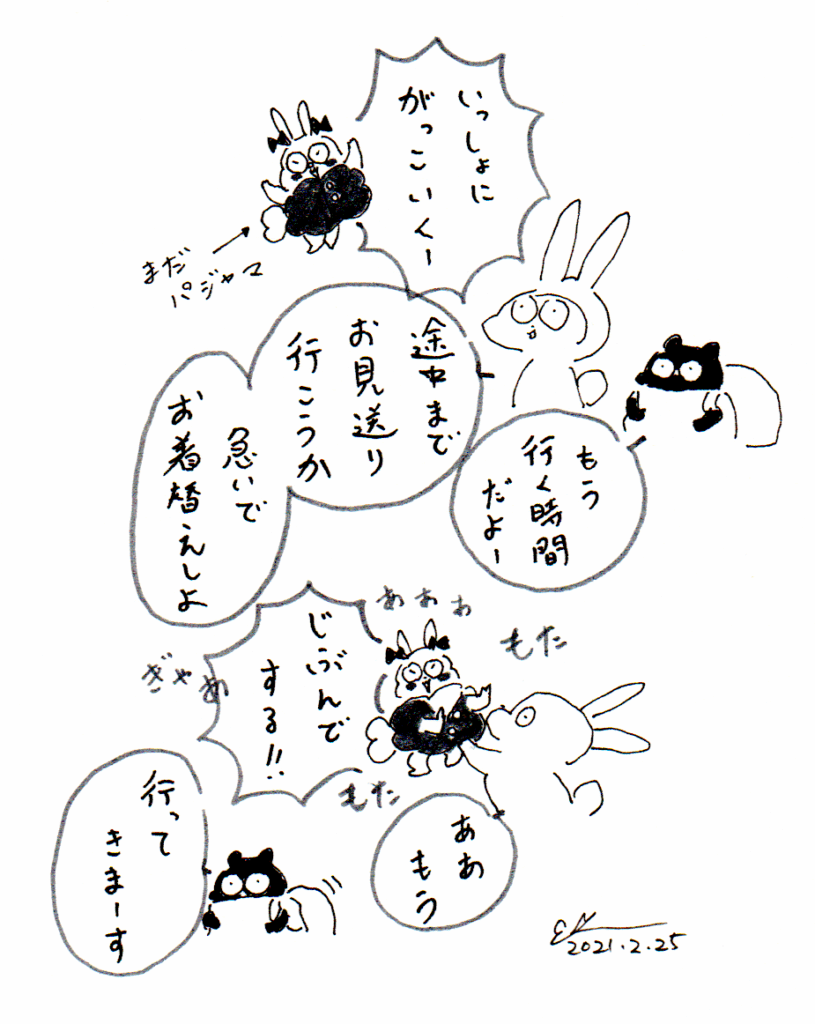 いっしょに
がっこいくー
まだ
パジャマ
途中まで
お見送り
行こうか
急いで
お着替えしよ
もう
行く時間
だよー
あぁぁ
じぶんで
する!!
ぎゃあ
もた
もた
ああ
もう
行って
きまーす
2021.2.25